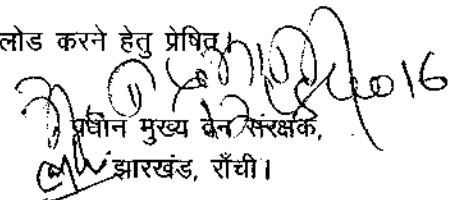 लोड करने हेतु प्रेषित।
2016
प्रधान मुख्य वन संरक्षक,
झारखंड, राँची।